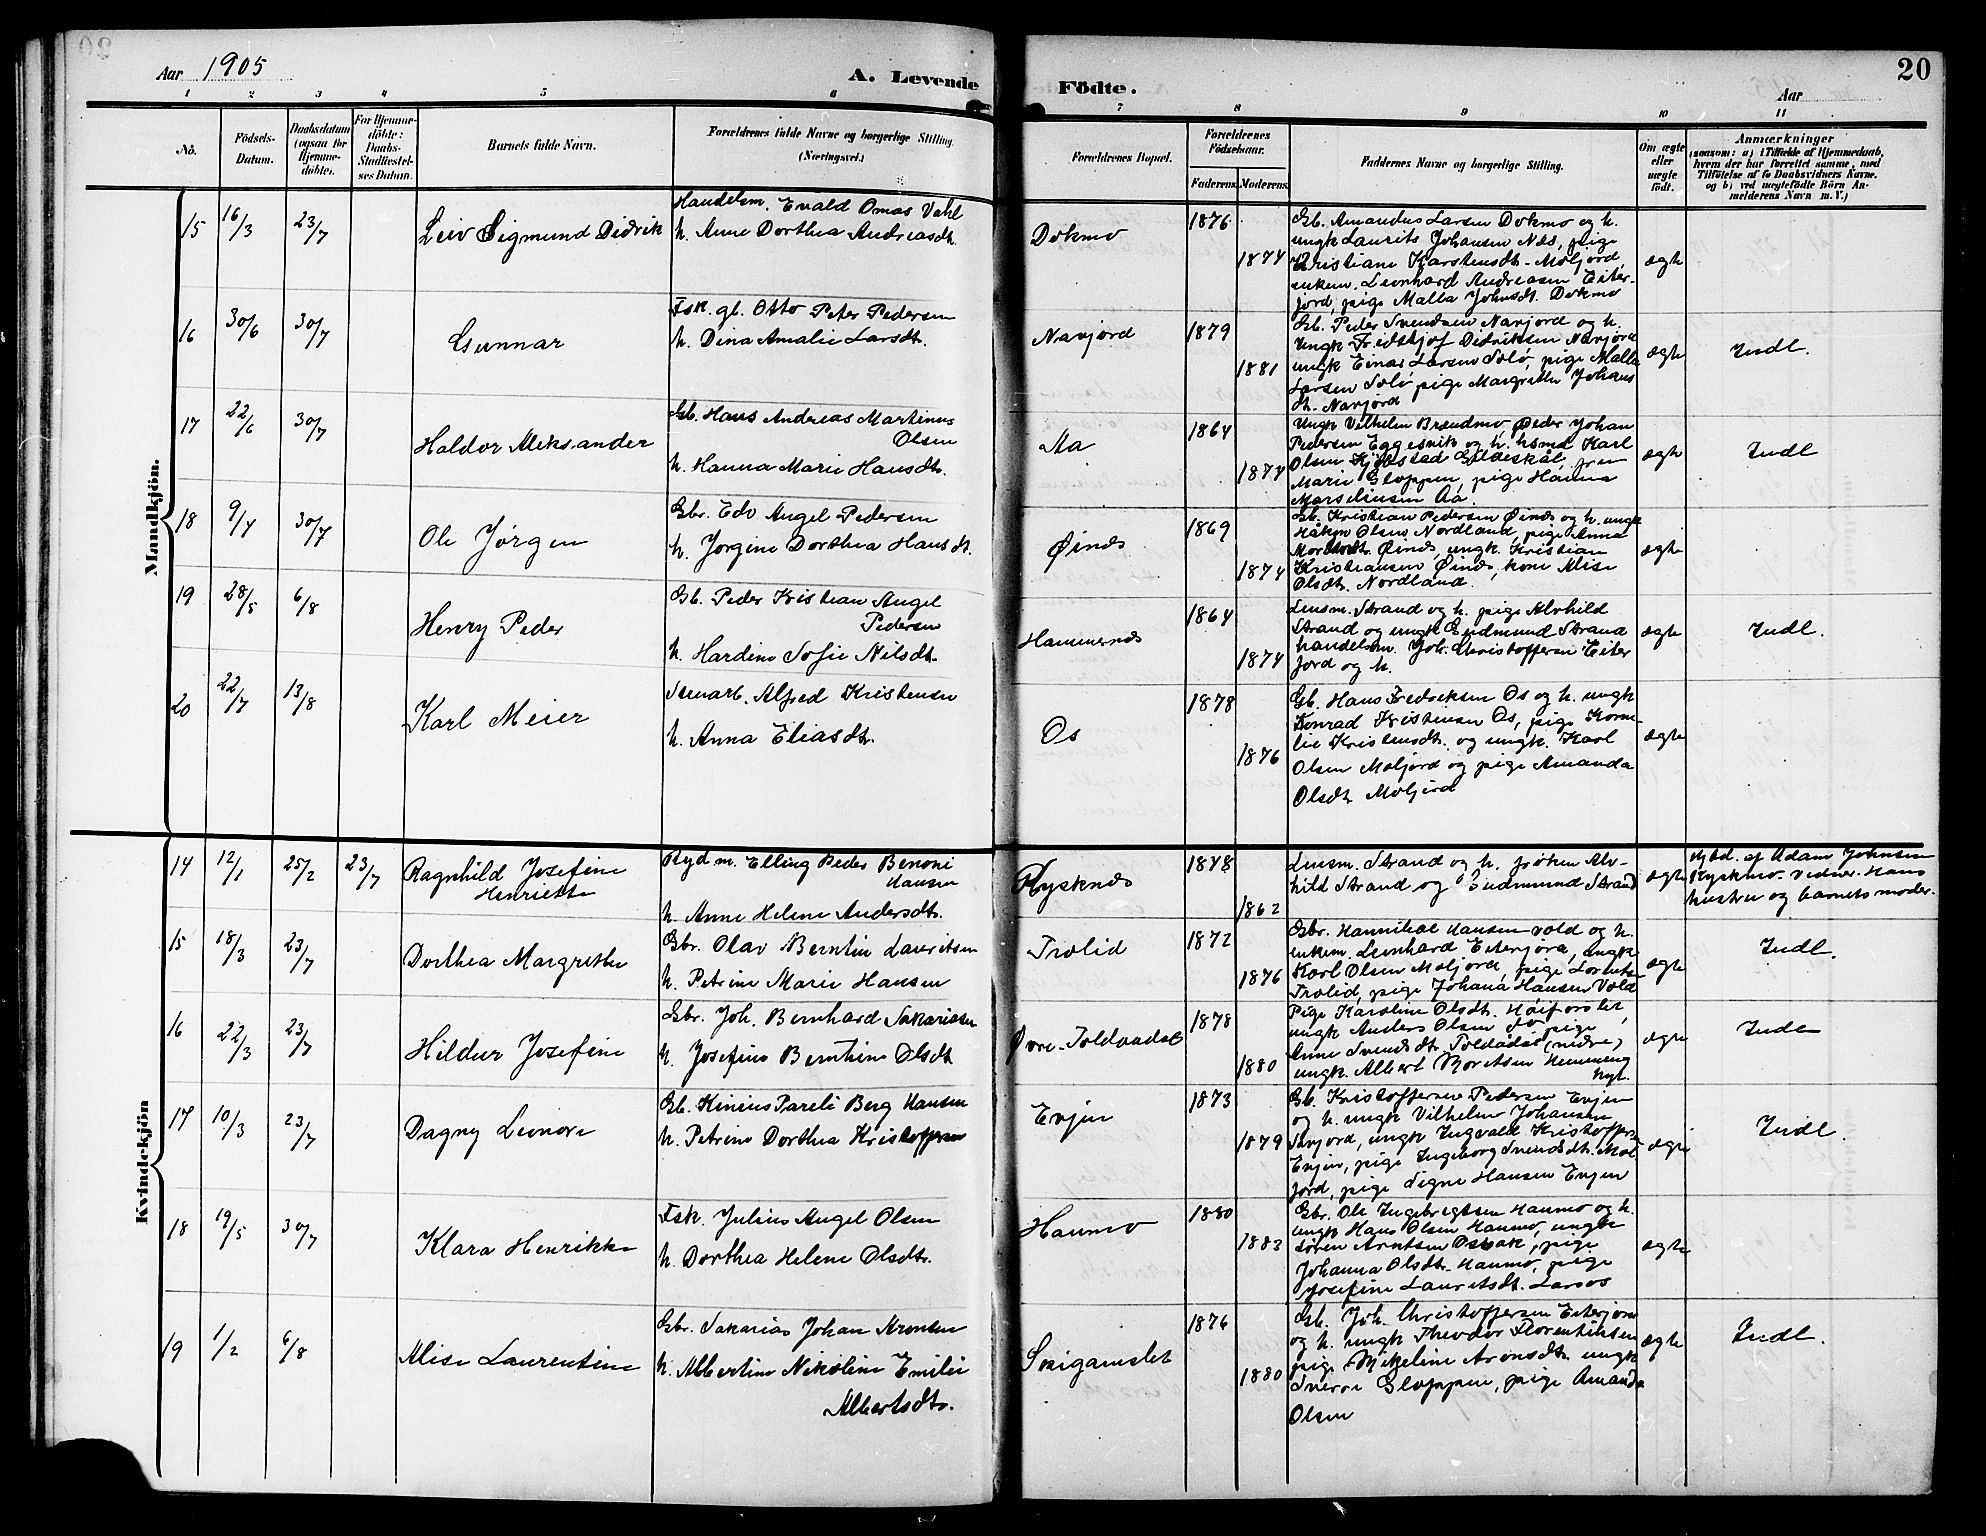 Aar 1905
A. Levende Födte.
20
Aar
1 2 3 4 5 6 7 8 9 10 11
No.
Födsels-Datum.
Daabsdatum (ogsaa for Hjemme-döbte).
For Hjemme-döbte: Daabs-Stadfæstel-ses Datum.
Barnets fulde Navn.
Forældrenes fulde Navne og borgerlige Stilling. (Næringsvei.)
Forældrenes Bopæl.
Forældrenes Födselsaar.
Faderens. Moderens.
Faddernes Navne og borgerlige Stilling.
Om ægte eller uægte födt.
Anmærkninger
(saasom: a) i Tilfælde af Hjemmedaab, hvem der har forrettet samme, med Tilföielse af to Daabsvidners Navne, og b) ved uægtefödte Börn An-melderens Navn m. V.)
Mandkjön.
15 16/3 23/7 Leiv Sigmund Didrik
Handelsm. Evald Omas Vahl
h. Anne Dorthea Andreasdt.
Dokmo 1876 1874
Gb. Amandus Larsen Dokmo og h.
ungk Laurits Johansen Næs, pige
Kristiane Karstensdt. Moljord,
enkem. Leonhard Andreasen Eiter-
jord, pige Malla Johnsdt. Dokmo
ægte
16 30/6 30/7 Gunnar
Fsk. gl. Otto Peter Pedersen
h. Dina Amalie Larsdt.
Navjord 1879 1881
Gb. Peder Svendsen Navjord og h.
Ungk Fridthjof Didriksen Navjord
ungk Einar Larsen Solø, pige Malla
Larsen Solø pige Margrethe Johans
dt. Navjord
ægte Indl.
17 22/6 30/7 Haldor Aleksander
Gb. Hans Andreas Martinus
Olsen
h. Hanna Marie Hansdt.
Aa 1864 1874
Ungk Vilhelm Brændmo, Peder Johan
Pedersen Eggesvik og h. hsmd Karl
Olsen Gildeskål, fru
Marie Gloppen, pige Hanna
Marseliusen Aa
ægte Indl
18 9/7 30/7 Ole Jørgen
Gbr. Edv Angel Pedersen
h. Jørgine Dorthea Hansdt.
Øinds 1869 1874
Gb. Kristian Pedersen Øinds og h. ungk
Håkon Olsen Nordland, pige Anna
Øinds, ungk. Kristian
Kristiansen Øinds, kone Alise
Olsdt. Nordland.
ægte
19 28/5 6/8 Henry Peder
Gb. Peder Kristian Angel
Pedersen
h. Hardine Sofie Nilsdt.
Hammernds 1864 1874
Lensm. Strand og h. pige Alvhild
Strand og ungk Gudmund Strand
handelsm. Joh. Christoffersen Eiter
jord og h.
ægte Indl.
20 22/7 13/8 Karl Meier
Stenarb. Alfred Kristensen
h. Anna Eliasdt.
Os 1878 1876
Gb. Hans Fredriksen Os og h. ungk
Konrad Kristensen Os, pige Korne-
lie Kristensdt. og ungk. Karl
Olsen Moljord og pige Amanda
Olsdt. Moljord
ægte
Kvindekjön
14 12/1 25/2 23/7 Ragnhild Josefine
Henriette
Rydm. Elling Peder Benoni
Hansen
h. Anne Helene Andersdt.
Rysknds 1848 1862
Lensm. Strand og h. frøken Alv-
hild Strand og Gudmund Strand
ægte
Hjbd. af Adam Johnsen
Ryskmo. Vidner. Hans
hustru og barnets moder.
15 18/3 23/7 Dorthea Margrethe
Gbr. Olav Berntin Lauritsen
h. Petrine Marie Hansen
Trolid 1872 1876
Gbr. Hannibal Hansen Vold og h.
enkem. Leonhard Eiterjord, ungk
Karl Olsen Moljord, pige Lorentse
Trolid, pige Johana Hansen Vold
ægte Indl.
16 22/3 23/7 Hildur Josefine
Gbr. Joh. Bernhard Sakariasen
h. Josefine Berntine Olsdt
Øvre-Toldaadal 1878 1880
Pige Karoline Olsdt. Høiforslet,
ungk Anders Olsen do pige
Anne Svendsdt. Toldådal (nedre)
ungk. Albert Moritsen Hemmeng
hyt.
ægte Indl
17 10/3 23/7 Dagny Leonore
Gb. Kinius Pareli Berg Hansen
h. Petrine Dorthea Kristoffersen
Evjen 1873 1879
Gb. Kristoffersen Pedersen Evjen
og h. ungk Vilhelm Johansen
Navjord, ungk Ingvald Kristoffers.
Evjen, pige Ingeborg Svendsdt. Mol
jord, pige Signe Hansen Evjen
ægte Indl.
18 19/5 30/7 Klara Henrikke
Fsk. Julius Angel Olsen
h. Dorthea Helene Olsdt.
Haumo 1880 1883
Gbr. Ole Ingebrigtsen Haumo og h.
ungk Hans Olsen Haumo, ungk
Søren Arntsen Osbak, pige
Johanna Olsdt. Haumo, pige
Josefine Lauritsdt. Larsos
ægte
19 1/2 6/8 Alise Laurentine
Gbr. Sakarias Johan Aronsen
h. Albertine Nikoline Emilie
Albertsdt.
Skigamslet 1876 1880
Gb. Joh. Christoffersen Eiterjord
og h. ungk Theodor Florentinsen
pige Mikeline Aronsdt. ungk
Sverre Gloppen, pige Amanda
Olsen
ægte Indl.